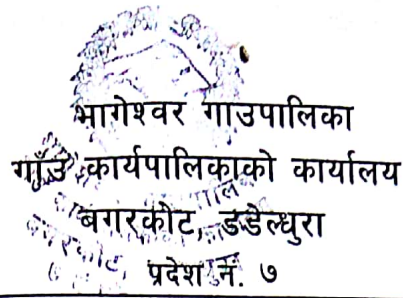 भागेश्वर गाउपालिका
गाँउ कार्यपालिकाको कार्यालय
बगरकोट, डडेल्धुरा
प्रदेश नं. ७